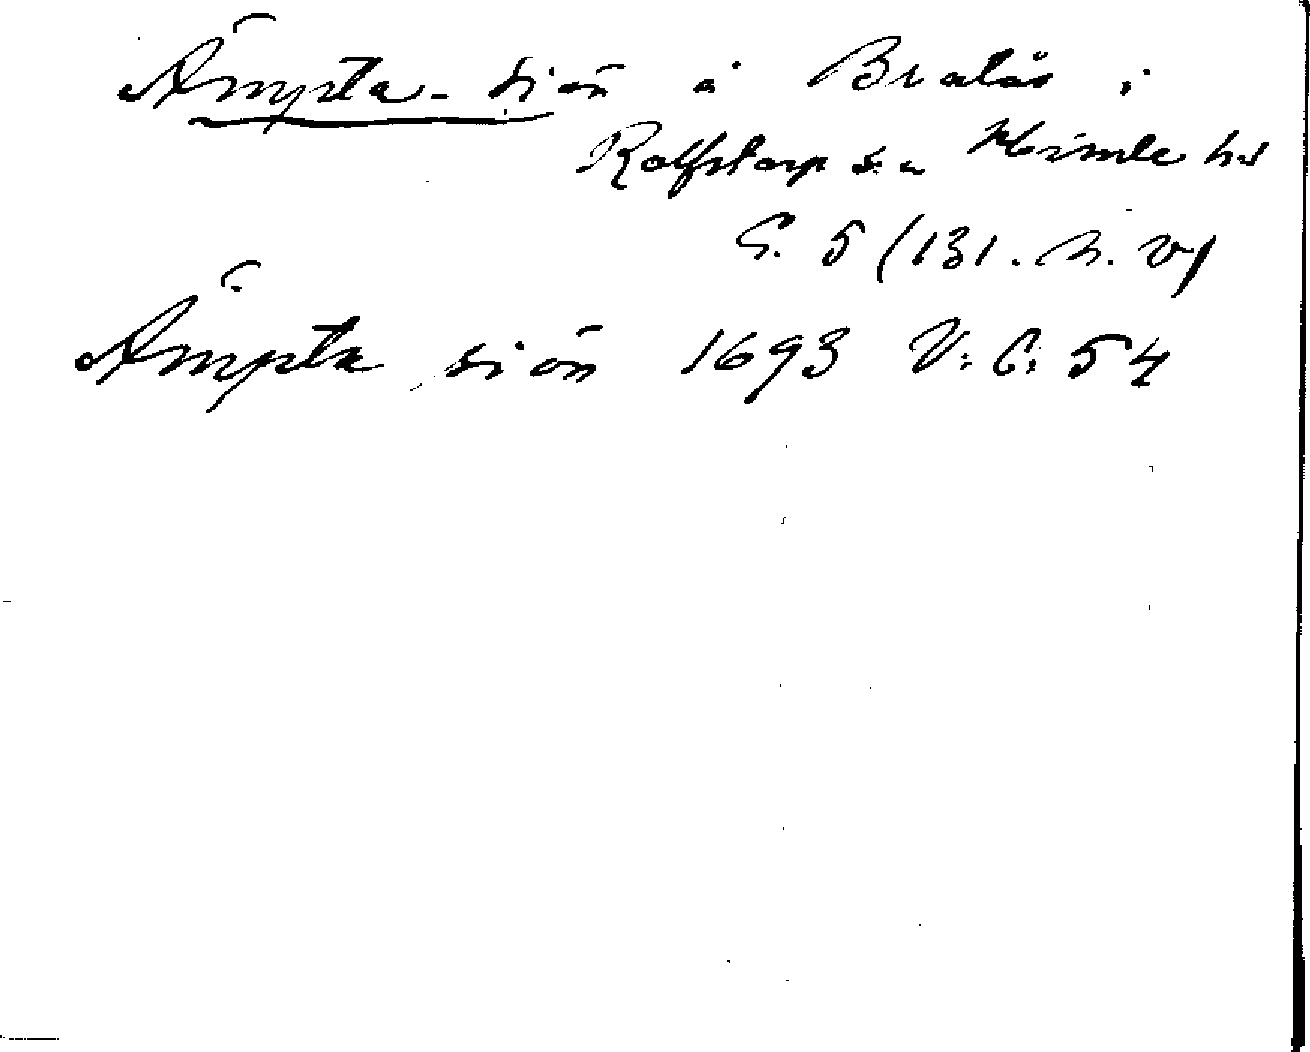 Ämpta-siön å Bratås i
Rolfstorp sn Himle hd
G. 5 (131. n. v)
Ämpta siön 1693 V: G: 54